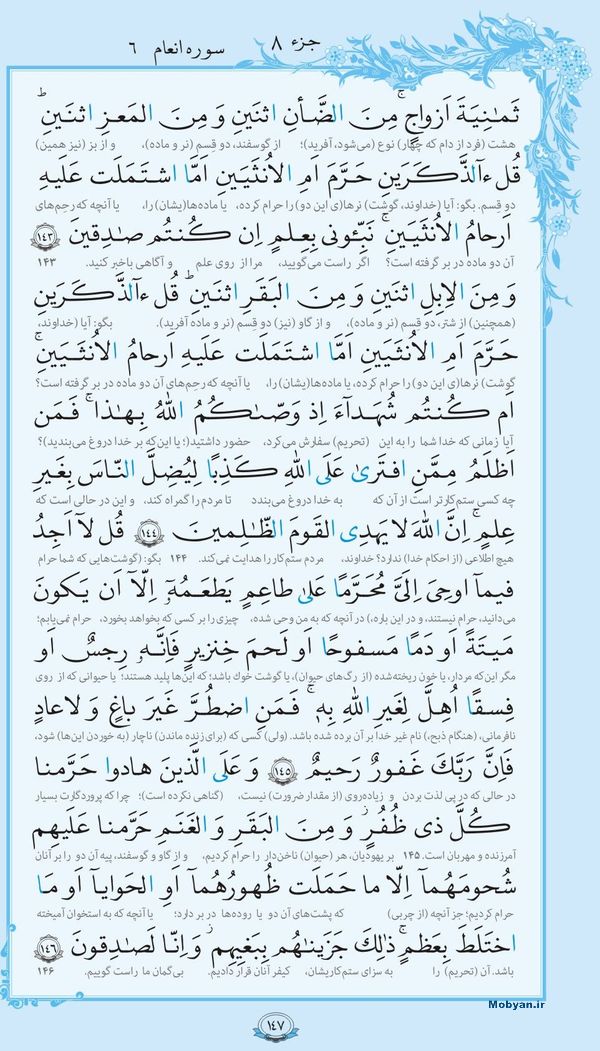 جزء ۸
سوره انعام ۶
ثَمٰنِیَةَ اَزواجٍ ۚ مِنَ الضَّأنِ اثنَینِ وَ مِنَ المَعزِ اثنَینِ ۗ
هشت (فرد از دام که چهار) نوع (می‌شود، آفرید)؛ از گوسفند، دو قِسم (نر و ماده)، و از بز (نیز همین)
قُل ءآلذَّکَرَینِ حَرَّمَ اَمِ الاُنثَیَینِ اَمَّا اشتَمَلَت عَلَیهِ
دو قِسم. بگو: آیا (خداوند، گوشت) نرها(ی این دو) را حرام کرده، یا ماده‌ها(یشان) را، یا آنچه که رحِم‌های
اَرحامُ الاُنثَیَینِ ۖ نَبِّئونی بِعِلمٍ اِن کُنتُم صادِقینَ ۱۴۳
آن دو ماده در بر گرفته است؟ اگر راست می‌گویید، مرا از روی علم و آگاهی باخبر کنید. ۱۴۳
وَ مِنَ الاِبِلِ اثنَینِ وَ مِنَ البَقَرِ اثنَینِ ۗ قُل ءآلذَّکَرَینِ
(همچنین) از شتر، دو قِسم (نر و ماده)، و از گاو (نیز) دو قِسم (نر و ماده آفرید). بگو: آیا (خداوند،
حَرَّمَ اَمِ الاُنثَیَینِ اَمَّا اشتَمَلَت عَلَیهِ اَرحامُ الاُنثَیَینِ ۖ
گوشت) نرها(ی این دو) را حرام کرده، یا ماده‌ها(یشان) را، یا آنچه که رحِم‌های آن دو ماده در بر گرفته است؟
اَم کُنتُم شُهَدآءَ اِذ وَصّٰکُمُ اللهُ بِهٰذا ۚ فَمَن
آیا زمانی که خدا شما را به این (تحریم) سفارش می‌کرد، حضور داشتید(؛ یا این‌که بر خدا دروغ می‌بندید)؟
اَظلَمُ مِمَّنِ افتَریٰ عَلَی اللهِ کَذِبًا لِیُضِلَّ النّاسَ بِغَیرِ
چه کسی ستم‌کارتر است از آن که به خدا دروغ می‌بندد تا مردم را گمراه کند، و این در حالی است که
عِلمٍ ۗ اِنَّ اللهَ لا یَهدِی القَومَ الظّالِمینَ ۱۴۴ قُل لآ اَجِدُ
هیچ اطلاعی (از احکام خدا) ندارد؟ خداوند، مردم ستم‌کار را هدایت نمی‌کند. ۱۴۴ بگو: (گوشت‌هایی که شما حرام
فیمآ اوحِیَ اِلَیَّ مُحَرَّمًا عَلیٰ طاعِمٍ یَطعَمُهُۥٓ اِلّآ اَن یَکونَ
می‌دانید، حرام نیستند، و در این باره،) در آنچه که به من وحی شده، چیزی را بر کسی که بخواهد بخورد، حرام نمی‌یابم؛
مَیتَةً اَو دَمًا مَسفوحًا اَو لَحمَ خِنزیرٍ فَاِنَّهُۥ رِجسٌ اَو
مگر این‌که مردار، یا خون ریخته‌شده (از رگ‌های حیوان)، یا گوشت خوک باشد؛ که این‌ها پلید هستند؛ یا حیوانی که از روی
فِسقًا اُهِلَّ لِغَیرِ اللهِ بِهٖ ۚ فَمَنِ اضطُرَّ غَیرَ باغٍ وَ لا عادٍ
نافرمانی، (هنگام ذبح،) نام غیر خدا بر آن برده شده باشد. (ولی) کسی که (برای زنده ماندن) ناچار (به خوردن این‌ها) شود،
فَاِنَّ رَبَّکَ غَفورٌ رَحیمٌ ۱۴۵ وَ عَلَی الَّذینَ هادوا حَرَّمنا
در حالی که در پی لذت بردن و زیاده‌روی (از مقدار ضرورت) نیست، (گناهی نکرده است)؛ چرا که پروردگارت بسیار
کُلَّ ذی ظُفُرٍ ۖ وَ مِنَ البَقَرِ وَ الغَنَمِ حَرَّمنا عَلَیهِم
آمرزنده و مهربان است. ۱۴۵ بر یهودیان، هر (حیوان) ناخن‌دار را حرام کردیم، و از گاو و گوسفند، پیه آن دو را بر آنان
شُحومَهُمآ اِلّا ما حَمَلَت ظُهورُهُمآ اَوِ الحَوایآ اَو مَا
حرام کردیم؛ جز آنچه (از چربی) که پشت‌های آن دو یا روده‌ها در بر دارد؛ یا آنچه که به استخوان آمیخته
اختَلَطَ بِعَظمٍ ۚ ذٰلِکَ جَزَینٰهُم بِبَغیِهِم ۖ وَ اِنّا لَصادِقونَ ۱۴۶
باشد. آن (تحریم) را به سزای ستم‌کاریشان، کیفر آنان قرار دادیم. بی‌گمان ما راست گوییم. ۱۴۶
Mobyan.ir
۱۴۷